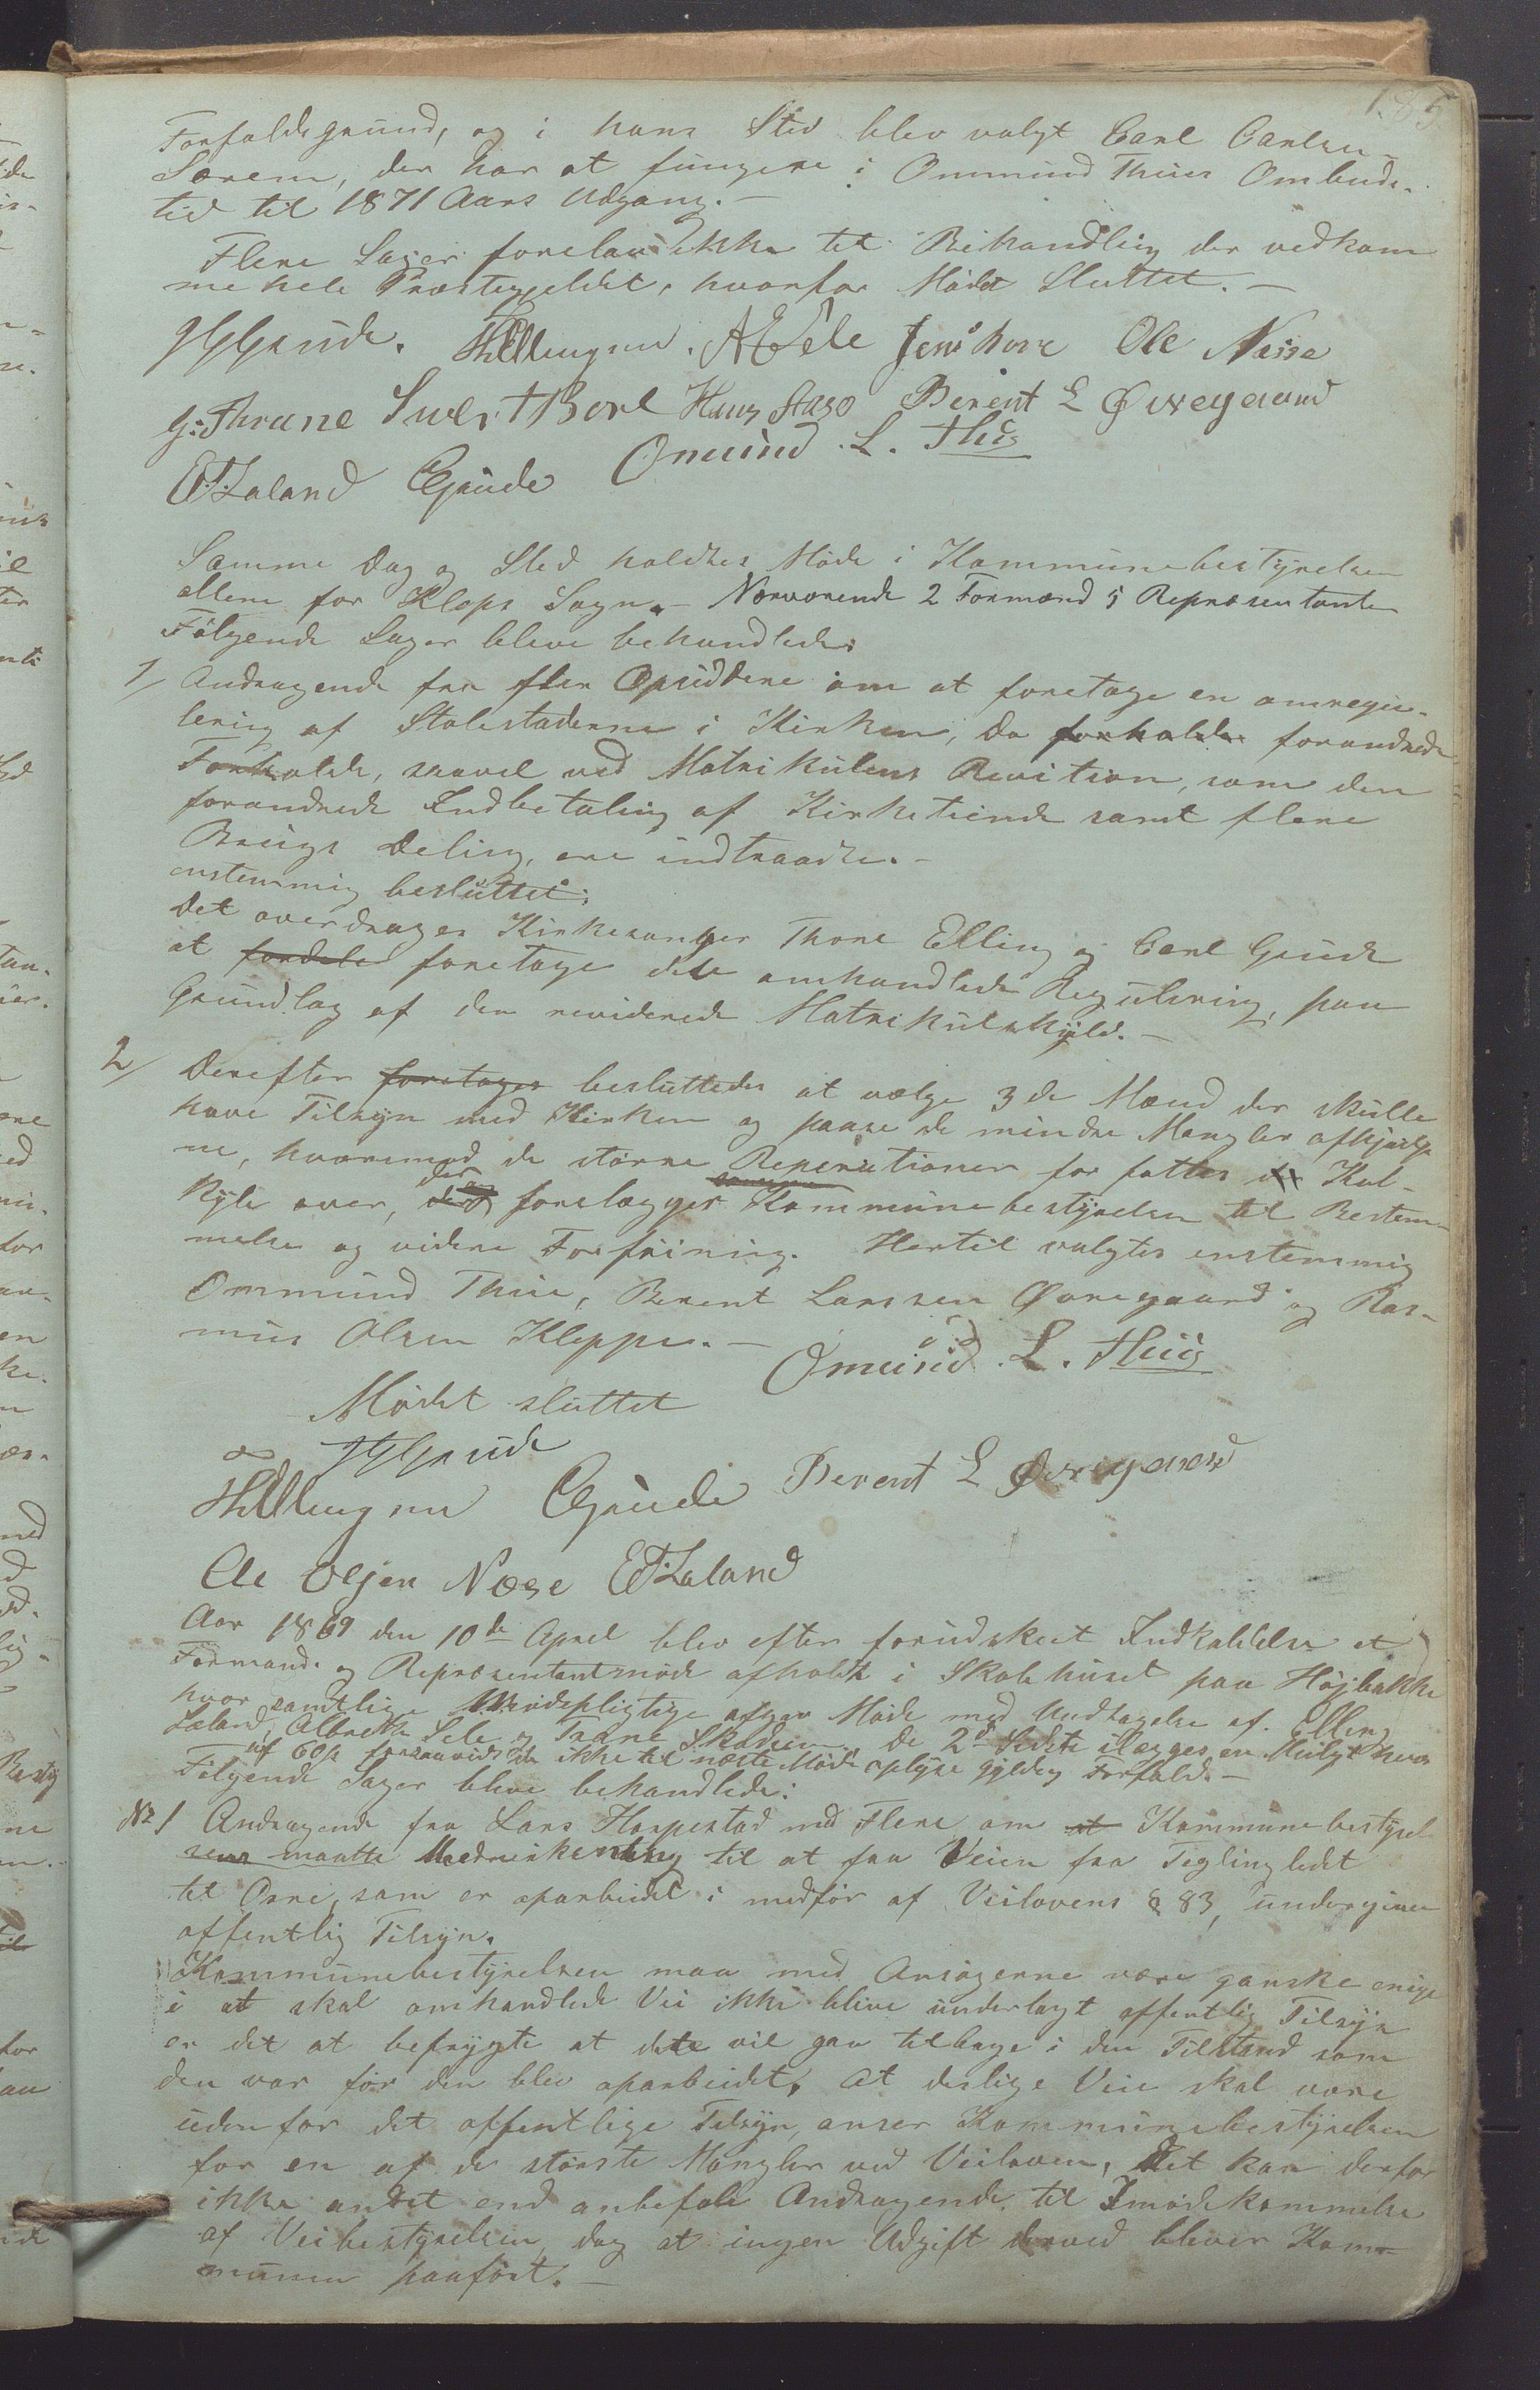 185
Forfaldsgrund, og i hans Sted blev valgt Carl Carlsen
Sørem, der har at fungere i Ommund Thues Ombuds-
tid til 1871 Aars Udgang.-
Flere Sager forelaa ikke til Behandling der vedkom
me hele Præstegjeldet, hvorfor Mødet Sluttet.-
Grude. H Ellingsen. A E Sele Jens Ole Næsse
G: Thrane Sivert Bore Berent L Øvregaard
E T Laland CGrude Omund. L. Thu
Samme Dag og Sted holdtes Møde i Kommunebestyrelsen
allene for Kleps Sogn.- Nærværende 2 Formænd 5 Repræsentanter
Følgende Sager bleve behandlede:
1/ Andragende fra flere Opsiddere om at foretage en omregu-
lering af Stolestaderne i Kirken, da forholde forandrede
Forholde, saavel ved Matrikulens Revition, som den
forandrede Indbetaling af Kirketiende samt flere
Brugs Deling, ere indtraadte.-
enstemmig besluttet:
Det overdrages Kirkesanger Thore Elling og Carl Grude
at fordele foretage dete omhandlede Regulering, paa
Grundlag af den reviderede Matrikulskyld.-
2/ Derefter foretages besluttedes at vælge 3de Mænd der skulle
have Tilsyn med Kirken og paase de mindre Mangler afhjælpe
ne, hvorimod de større Reperationer forfattes Kal-
kyle over, der forelægges Kommunebestyrelsen til Bestem-
melse og videre Forføining. Hertil valgtes enstemmig
Ommund Thue, Berent Larssen Øvregaard og Ras-
mus Olsen Kleppe.-
Omund. L. Thu
Mødet sluttet
Grude
H Ellingsen CGrude Berent L Øvregaard
Ole Olsen Næse E T Laland
Aar 1869 den 10de April blev efter forudskeet Indkaldelse et
Formand- og Repræsentantmøde afholdt i Skolehuset paa Højbakke
hvor samtlige Mødepligtige afgav Møde med Undtagelse af. Elling
Laland, Albreth Sele og Trane Skadsem. De 2de Sidste ilægges en Mulgt hver
af 60 s forsaavidt de ikke til næste Møde oplyse gyldig Forfald.-
Følgende Sager bleve behandlede:
No 1 Andragende fra Lars Horpestad med Flere om at Kommunebestyrel-
sens maatte Medvirkening til at faa Veien fra Tegling ledet
til Orre, som er oparbeidet i medfør af Veilovens § 83, undergiven
offentlig Tilsyn.
Kommunebestyrelsen maa med Ansøgerne være ganske enige
i at skal omhandlede Vei ikke blive underlagt offentlig Tilsyn
er det at befrygte at dete vil gaa tilbage i den Tilstand som
den var før den blev oparbeidet, at deslige Veie skal være
udenfor det offentlige Tilsyn, anser Kommunebestyrelsen
for en af de største Mangler ved Veiloven, Det kan derfor
ikke andet end anbefale Andragende til Imødekommelse
af Veibestyrelsen, dog at ingen Udgift derved bliver Kom-
munen paaført.-